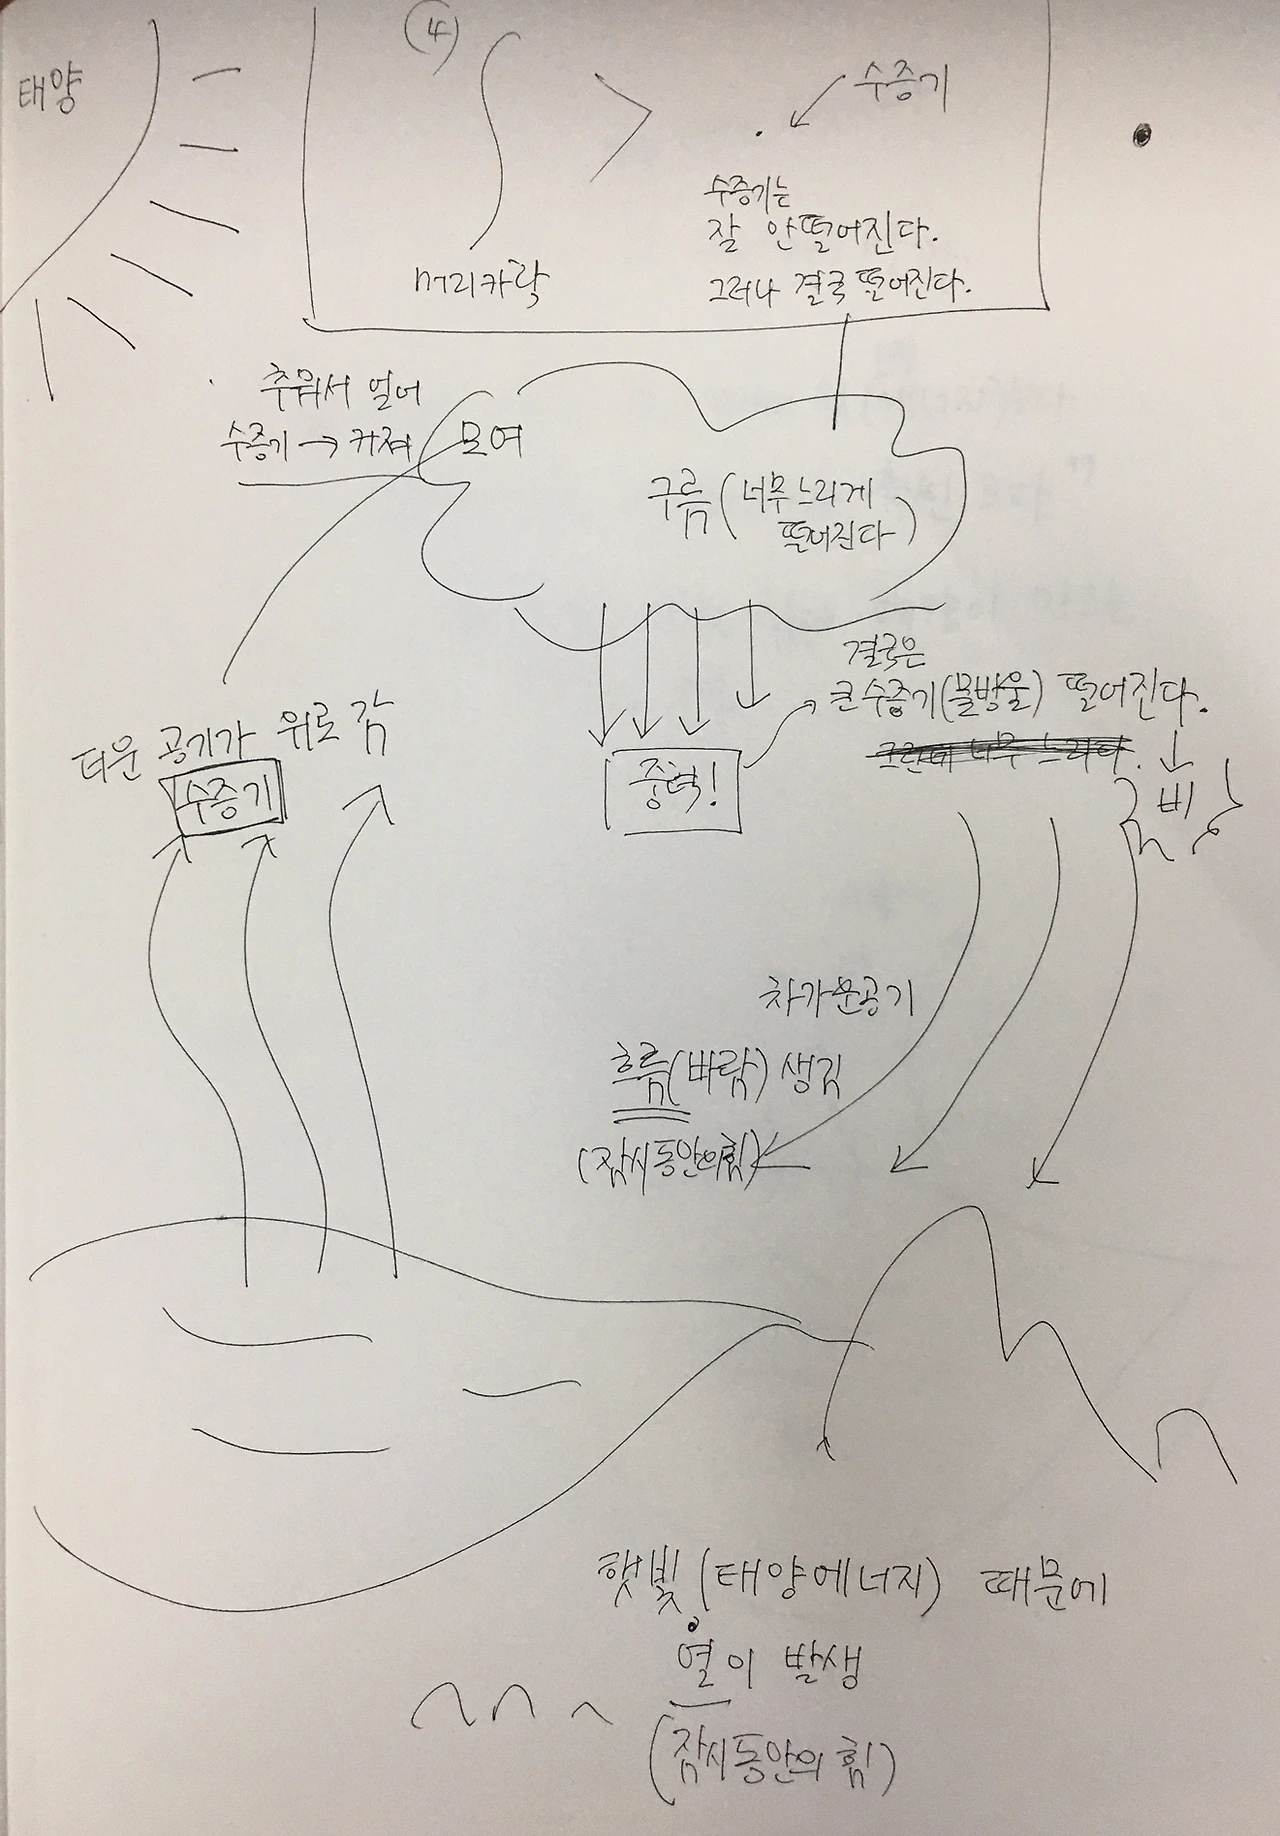 태양
④
수증기
수증기는
잘 안떨어진다.
머리카락
그러나 결국 떨어진다.
추워서 얼어
수증기 → 커져 모여
구름(너무느리게
떨어진다)
결국은
큰수증기(물방울) 떨어진다.
그런데 너무 느리다.
비
더운 공기가 위로 감
수증기
중력!
차가운공기
흐름(바람) 생김
(잠시동안의힘)
햇빛(태양에너지) 때문에
열이 발생
(잠시동안의 힘)